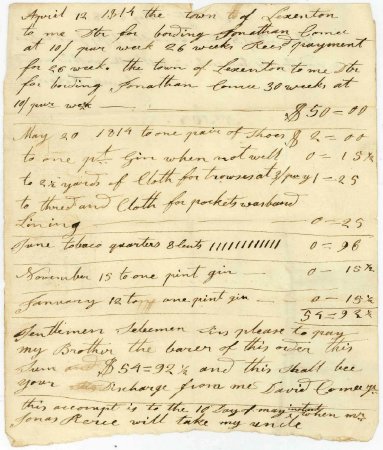 April 12 1814 the town of Lexenton
to me Dtr for bording Jonathan Comee
at 10/ pur week 26 weeks Recd payment
for 26 weeks the town of Lexenton to me Dtr
for bording Jonathan Comee 30 weeks at
10/ pur week $50=00
May 20 1814 to one pair of Shoes $2=00
to one pt. Gin when not well 0=15½
to 2½ yards of Cloth for trowses at 3/ pr y 1=25
to thred and Cloth for pockets wasband
Lining 0=25
June tobaco quarters 8 Cents 111111111111 0=96
November 15 to one pint gin 0=15½
January 12 to one pint gin 0=15½
54=92½
Gentlemen Selecmen Sirs please to pay
my Brother the barer of this order this
Sum $54=92½ and this Shall bee
your discharge from me David Comee
this accompt is to the 10 Day of may when mr
Jonas Peirce will take my uncle